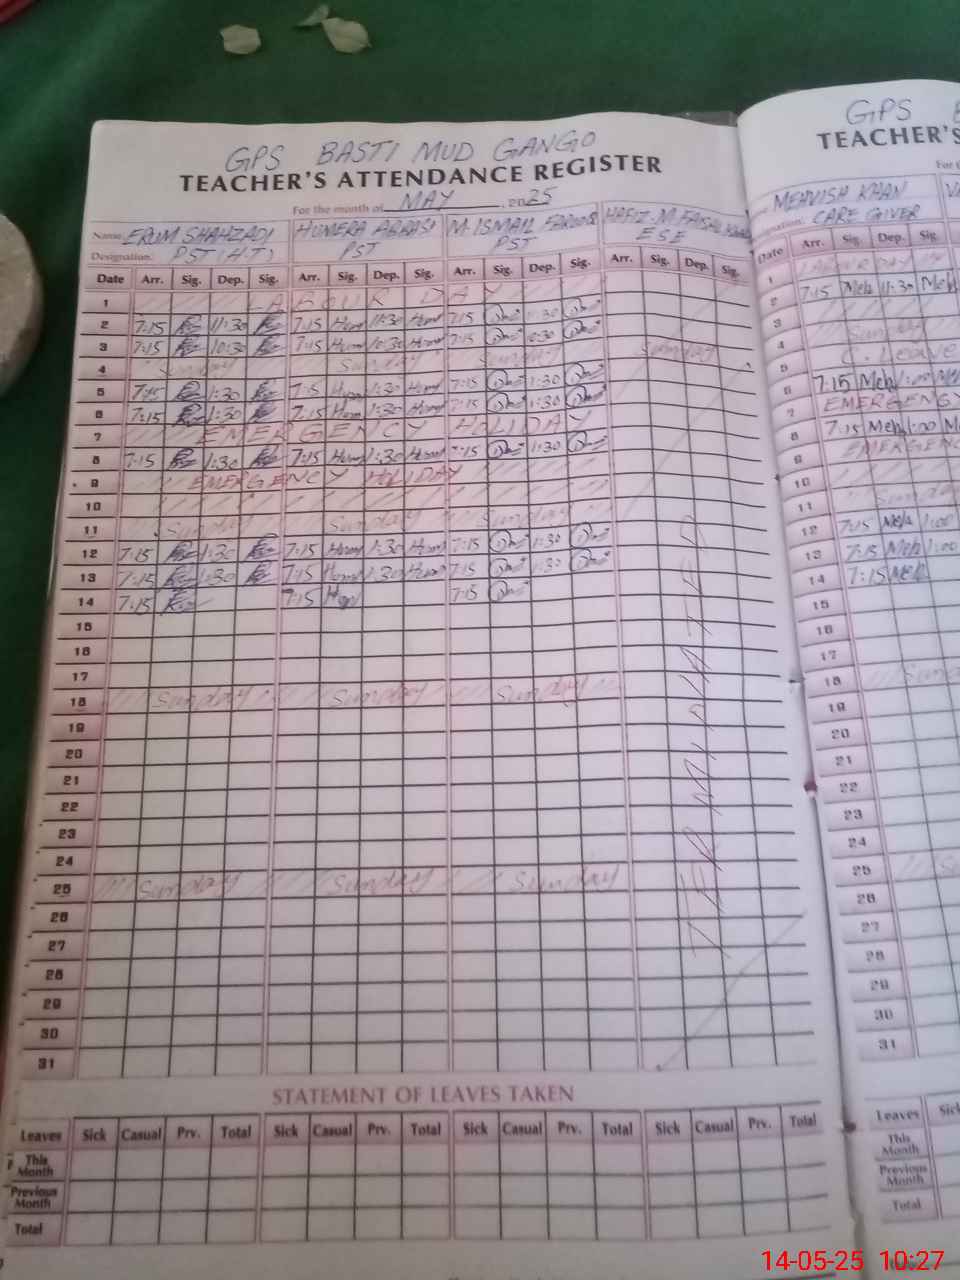 GPS BASTI MUD GANGO
TEACHER'S ATTENDANCE REGISTER
For the month of MAY, 2025
Name ERUM SHAHZADI HUMERA ABBASI M. ISMAIL FAROOQ HAFIZ. M. FAISAL
Designation: PST (H.T) PST PST ESE
Date Arr. Sig. Dep. Sig. Arr. Sig. Dep. Sig. Arr. Sig. Dep. Sig. Arr. Sig. Dep. Sig.
1 LABOUR DAY
2 7:15 11:30 7:15 Hum 11:30 Hum 7:15 11:30
3 7:15 10:30 7:15 Hum 10:30 Hum 7:15 10:30
4 Sunday Sunday Sunday Sunday
5 7:15 1:30 7:15 Hum 1:30 Hum 7:15 1:30
6 7:15 1:30 7:15 Hum 1:30 Hum 7:15 1:30
7 EMERGENCY HOLIDAY
8 7:15 1:30 7:15 Hum 1:30 Hum 7:15 1:30
9 EMERGENCY HOLIDAY
10
11 Sunday Sunday Sunday
12 7:15 1:30 7:15 Hum 1:30 Hum 7:15 1:30
13 7:15 1:30 7:15 Hum 1:30 Hum 7:15 1:30
14 7:15 7:15 Hum 7:15
15
16
17
18 Sunday Sunday Sunday
19
20
21
22
23
24
25 Sunday Sunday Sunday
26
27
28
29
30
31
TERMINATED
STATEMENT OF LEAVES TAKEN
Leaves Sick Casual Prv. Total Sick Casual Prv. Total Sick Casual Prv. Total Sick Casual Prv. Total
This Month
Previous Month
Total
GPS
TEACHER'S
MEHVISH KHAN
CARE GIVER
Date Arr. Sig. Dep. Sig.
1 LABOUR DAY
2 7:15 Meh 11:30 Meh
3
4 Sunday
5 C. Leave
6 7:15 Meh 1:00 Meh
7 EMERGENCY
8 7:15 Meh 1:00
9 EMERGENC
10
11 Sunday
12 7:15 Meh 1:00
13 7:15 Meh 1:00
14 7:15 Meh
15
16
17
18 Sunda
19
20
21
22
23
24
25
26
27
28
29
30
31
Leaves Sick
This Month
Previous Month
Total
14-05-25 10:27